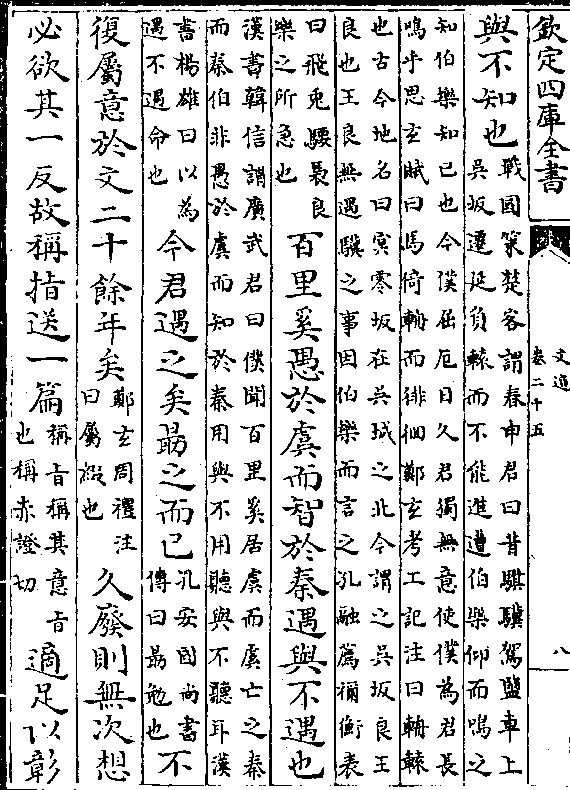 欽定四庫全書
文選
卷二十五
八
與不知也
戰國策楚客謂春申君曰昔騏驥駕鹽車上
吳坂遷延負轅而不能進遭伯樂仰而鳴之
知伯樂知已也今僕屈厄日久君獨無意使僕為君長
鳴乎思玄賦曰馬倚輈而徘徊鄭玄考工記注曰輈轅
也古今地名曰冥零坂在吳城之北今謂之吳坂良王
良也王良無遇驥之事因伯樂而言之孔融薦禰衡表
曰飛兎騕褭良
樂之所急也
百里奚愚於虞而智於秦遇與不遇也
漢書韓信謂廣武君曰僕聞百里奚居虞而虞亡之秦
而秦伯非愚於虞而知於秦用與不用聽與不聽耳漢
書楊雄曰以為
遇不遇命也
今君遇之矣勗之而已
孔安國尚書
傳曰勗勉也
不
復屬意於文二十餘年矣
鄭玄周禮注
曰屬綴也
久廢則無次想
必欲其一反故稱指送一篇
稱旨稱其意旨
也稱赤證切
適足以彰